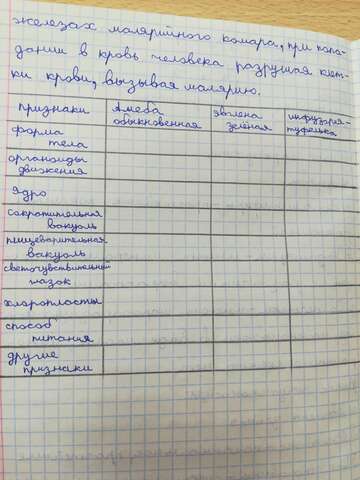 железах малярийного комара, при попа-
дании в кровь человека разрушая клет-
ки крови, вызывая малярию.
признаки Амёба обыкновенная эвглена зелёная инфузория-туфелька
форма
тела
органоиды
движения
ядро
сократительная
вакуоль
пищеварительная
вакуоль
светочувствительный
глазок
хлоропласты
способ
питания
другие
признаки